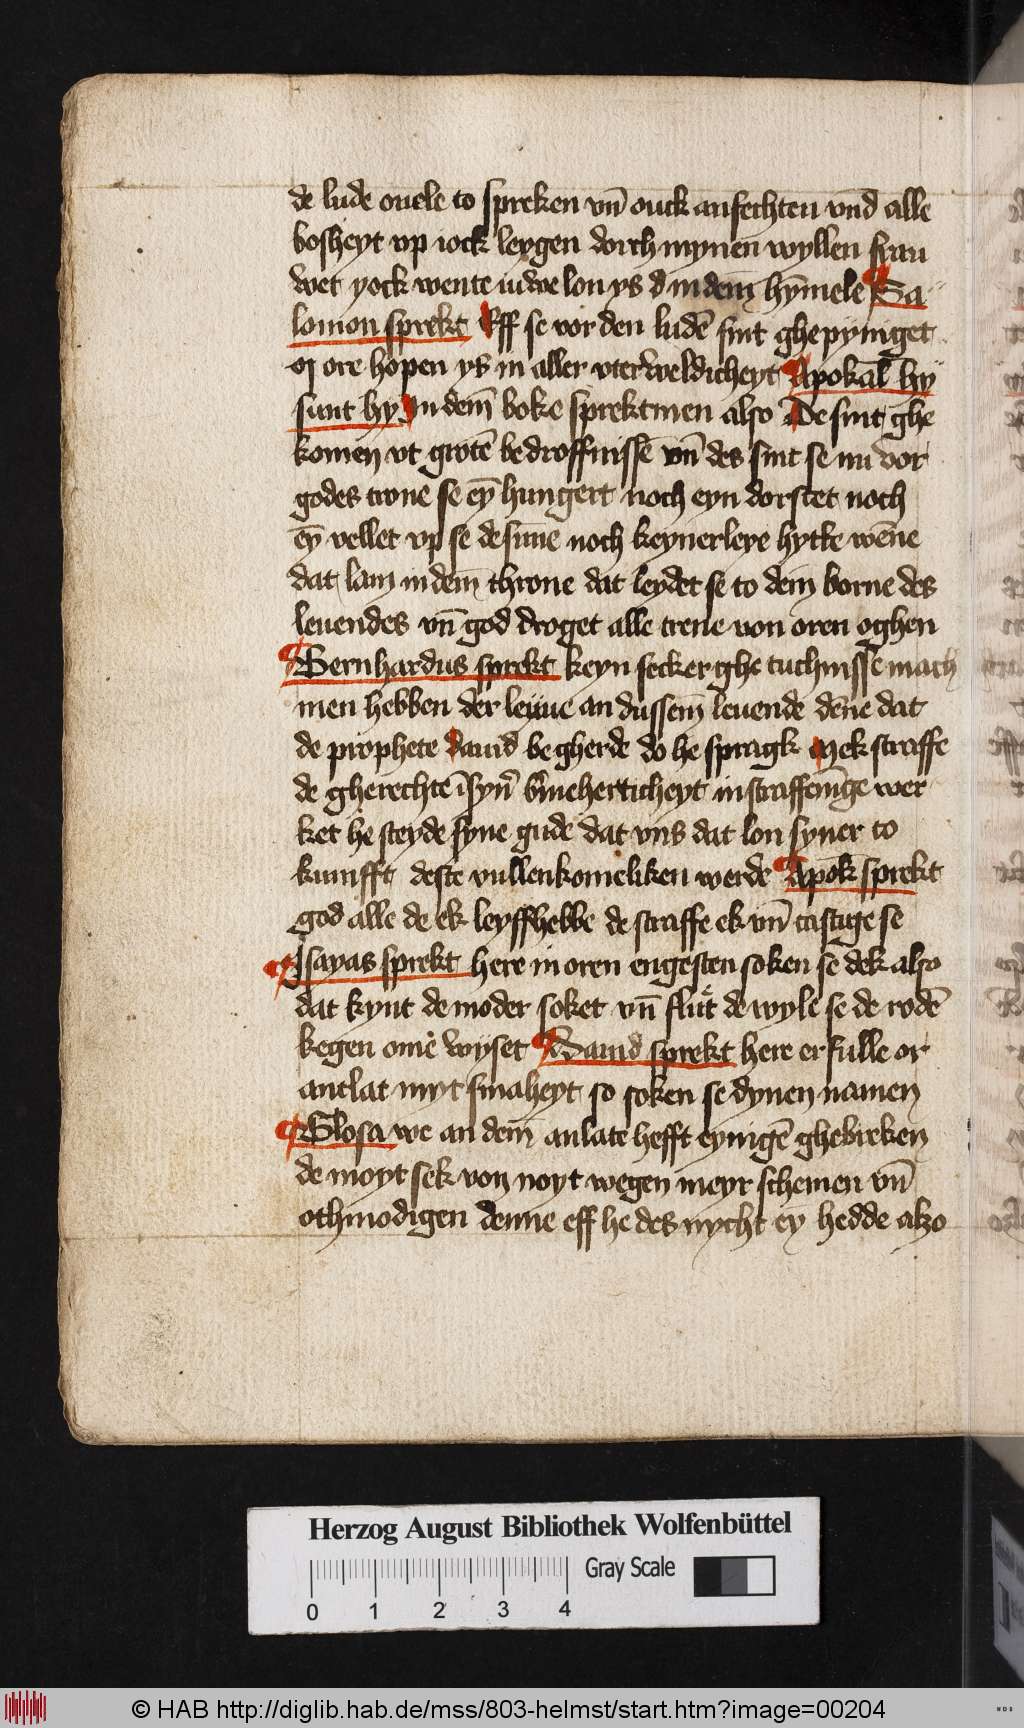 de lude ouele to spreken vn̄ ouck anfechten vnd alle
bosheyt vp iock leygen dorch mynen wyllen frau
wet yock wente iuwe lon ys in dem̄ hȳmele Sa
lomon sprekt Eff se vor den ludē sint ghepyniget
ore hopen ys in aller vterweldicheyt Apokal̄ hy
sunt hy In dem̄ boke sprektmen also De sint ghe
komen vt grotē bedroffnissē vn̄ des sint se nu vor
godes trone se eȳ hungert noch eyn dorstet noch
eȳ vellet vp se de sūne noch keynerleye hytte wēne
dat lam in dem̄ throne dat leydet se to dem borne des
leuendes vn̄ god droget alle trene von oren oghen
Bernhardus sprekt keyn secker ghetuchnisse mach
men hebben der leyue an dussem̄ leuende dēne dat
de prophete dauid begherde do he spragk Mek straffe
de gherechte in straffenīge wer
ket he steyde syne gude dat vns dat lon syner to
kumfft deste vullenkomeliken werde Apok̄ sprekt
god alle de ek leyffhebbe de straffe ek vn̄ castige se
Isayas sprekt here in oren engesten soken se dek also
dat kynt de moder soket vn̄ flut de wyle se de rodē
kegen ome wyset Dauid sprekt here erfulle or
antlat myt smaheyt so soken se dynen namen
Glosa we an dem̄ anlate hefft eynigē ghebreken
de moyt sek von noyt wegen meyr schemen vn̄
othmodigen denne eff he des nycht ey hedde alzo
Herzog August Bibliothek Wolfenbüttel
Gray Scale
0 1 2 3 4
© HAB http://diglib.hab.de/mss/803-helmst/start.htm?image=00204